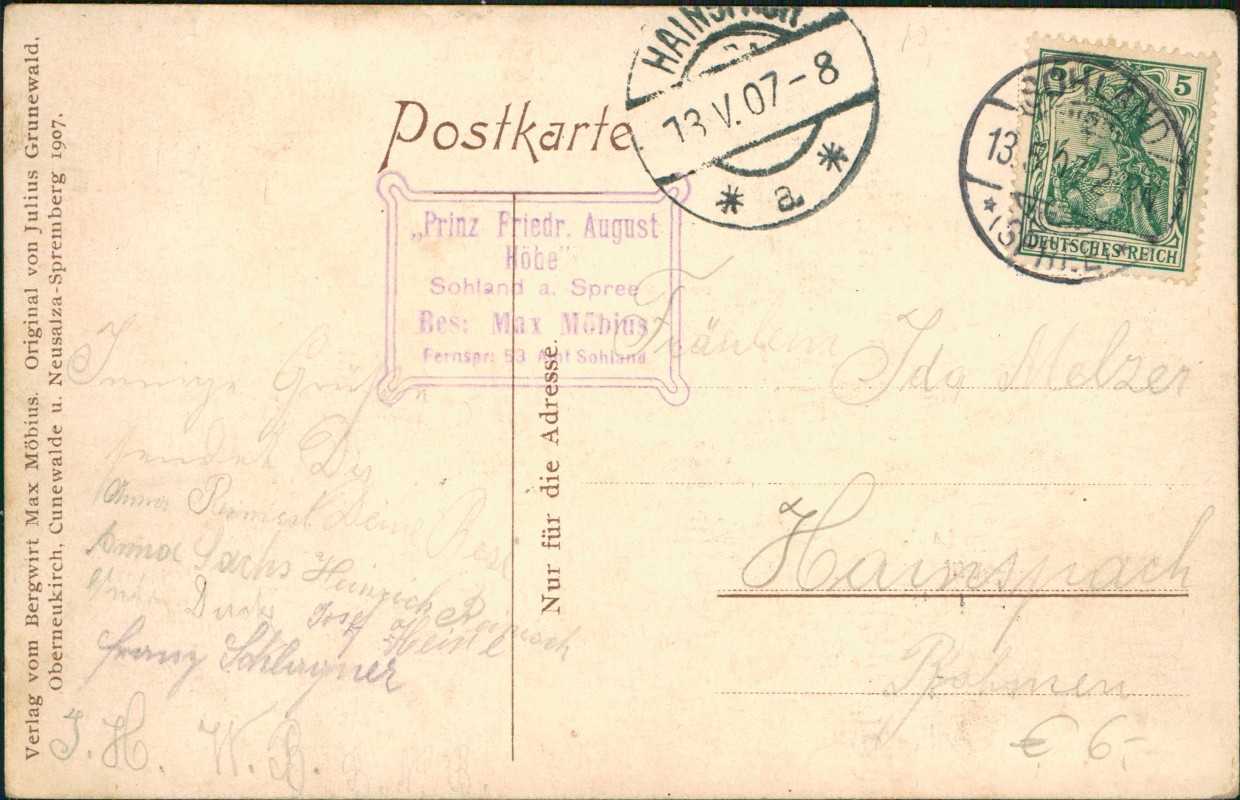 Verlag vom Bergwirt Max Möbius. Original von Julius Grunewald,
Oberneukirch, Cunewalde u. Neusalza-Spremberg 1907.
Postkarte
HAINSPACH
13 V. 07-8
* a *
SOHLAND
13.5.07
* (SPREE) *
5
DEUTSCHES REICH
„Prinz Friedr. August
Höhe"
Sohland a. Spree
Bes: Max Möbius
Fernspr: 53 Amt Sohland.
Nur für die Adresse.
Fräulein Ida Melzer
Hainspach
Böhmen
€ 6,-
Innige Grüße
sendet Dir
Anna Deine
Anna Sachs Heinrich
Josef Heine
Franz
J. H. W. B.